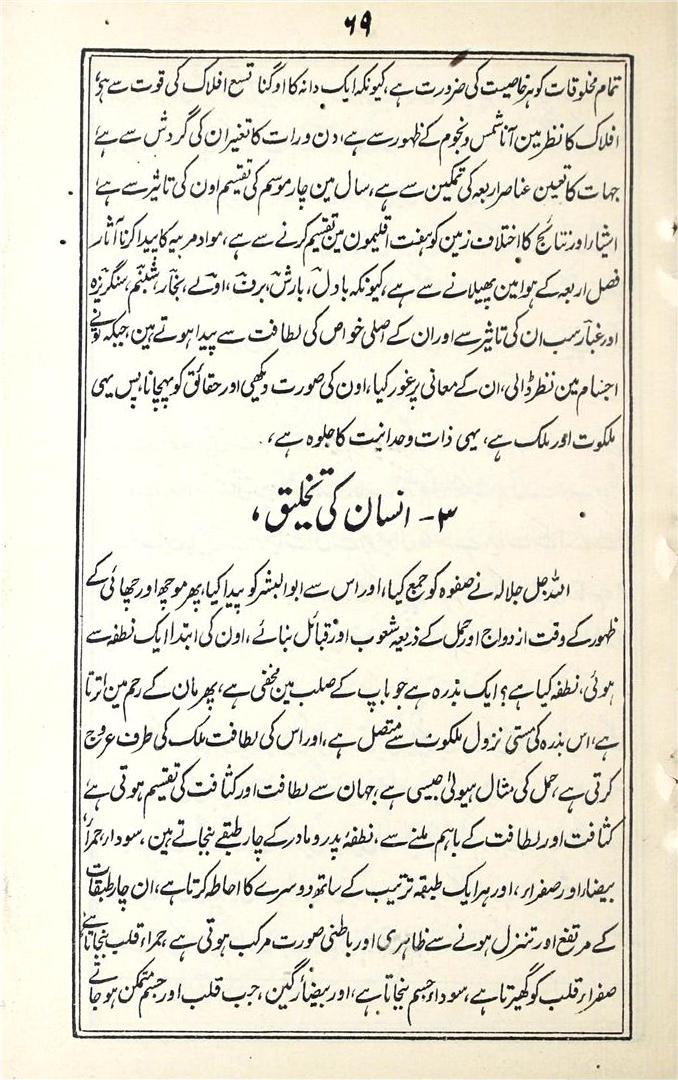 ۶۹
تمام مخلوقات کو ہر خاصیت کی ضرورت ہے، کیونکہ ایک دانہ کا اوگنا تسع افلاک کی قوت سے ہے،
افلاک کا نظر مین آنا شمس ونجوم کے ظہور سے ہے، دن ورات کا تغیر ان کی گردش سے ہے
جہات کا تعین عناصر اربعہ کی تمکین سے ہے، سال مین چار موسم کی تقسیم اون کی تاثیر سے ہے
اشیاء اور نتائج کا اختلاف زمین کو ہفت اقلیمون مین تقسیم کرنے سے ہے، مواد مربیہ کا پیدا کرنا آثار
فصل اربعہ کے ہوا مین پھیلانے سے ہے، کیونکہ بادل، بارش، برف، اولے، بخار، شبنم، سنگریزہ
اور غبار سب ان کی تاثیر سے اور ان کے اصلی خواص کی لطافت سے پیدا ہوتے ہین، جبکہ تونے
اجسام مین نظر ڈالی، ان کے معانی پر غور کیا، اون کی صورت دیکھی اور حقائق کو پہچانا، بس یہی
ملکوت اور ملک ہے، یہی ذات وحدانیت کا جلوہ ہے،
۳- انسان کی تخلیق،
اللہ جل جلالہ نے صفوہ کو جمع کیا، اور اس سے ابو البشر کو پیدا کیا، پھر موچھ اور چھائی کے
ظہور کے وقت ازدواج اور حمل کے ذریعہ شعوب اور قبائل بنائے، اون کی ابتدا ایک نطفہ سے
ہوئی، نطفہ کیا ہے؟ ایک بذرہ ہے جو باپ کے صلب مین مخفی ہے، پھر مان کے رحم مین اترتا
ہے، اس بذرہ کی مستی نزول ملکوت سے متصل ہے، اور اس کی لطافت ملک کی طرف عروج
کرتی ہے، حمل کی مثال ہیولیٰ جیسی ہے جہان سے لطافت اور کثافت کی تقسیم ہوتی ہے
کثافت اور لطافت کے باہم ملنے سے، نطفۂ پدر و مادر کے چار طبقے بنجاتے ہین، سوداء، حمراء،
بیضاء اور صفراء، اور ہر ایک طبقہ ترتیب کے ساتھ دوسرے کا احاطہ کرتا ہے، ان چار طبقات
کے مرتفع اور تنزل ہونے سے ظاہری اور باطنی صورت مرکب ہوتی ہے، حمراء، قلب بنجاتا ہے
صفراء قلب کو گھیرتا ہے، سوداء جسم بنجاتا ہے، اور بیضاء رگین، جب قلب اور جسم متمکن ہو جاتے